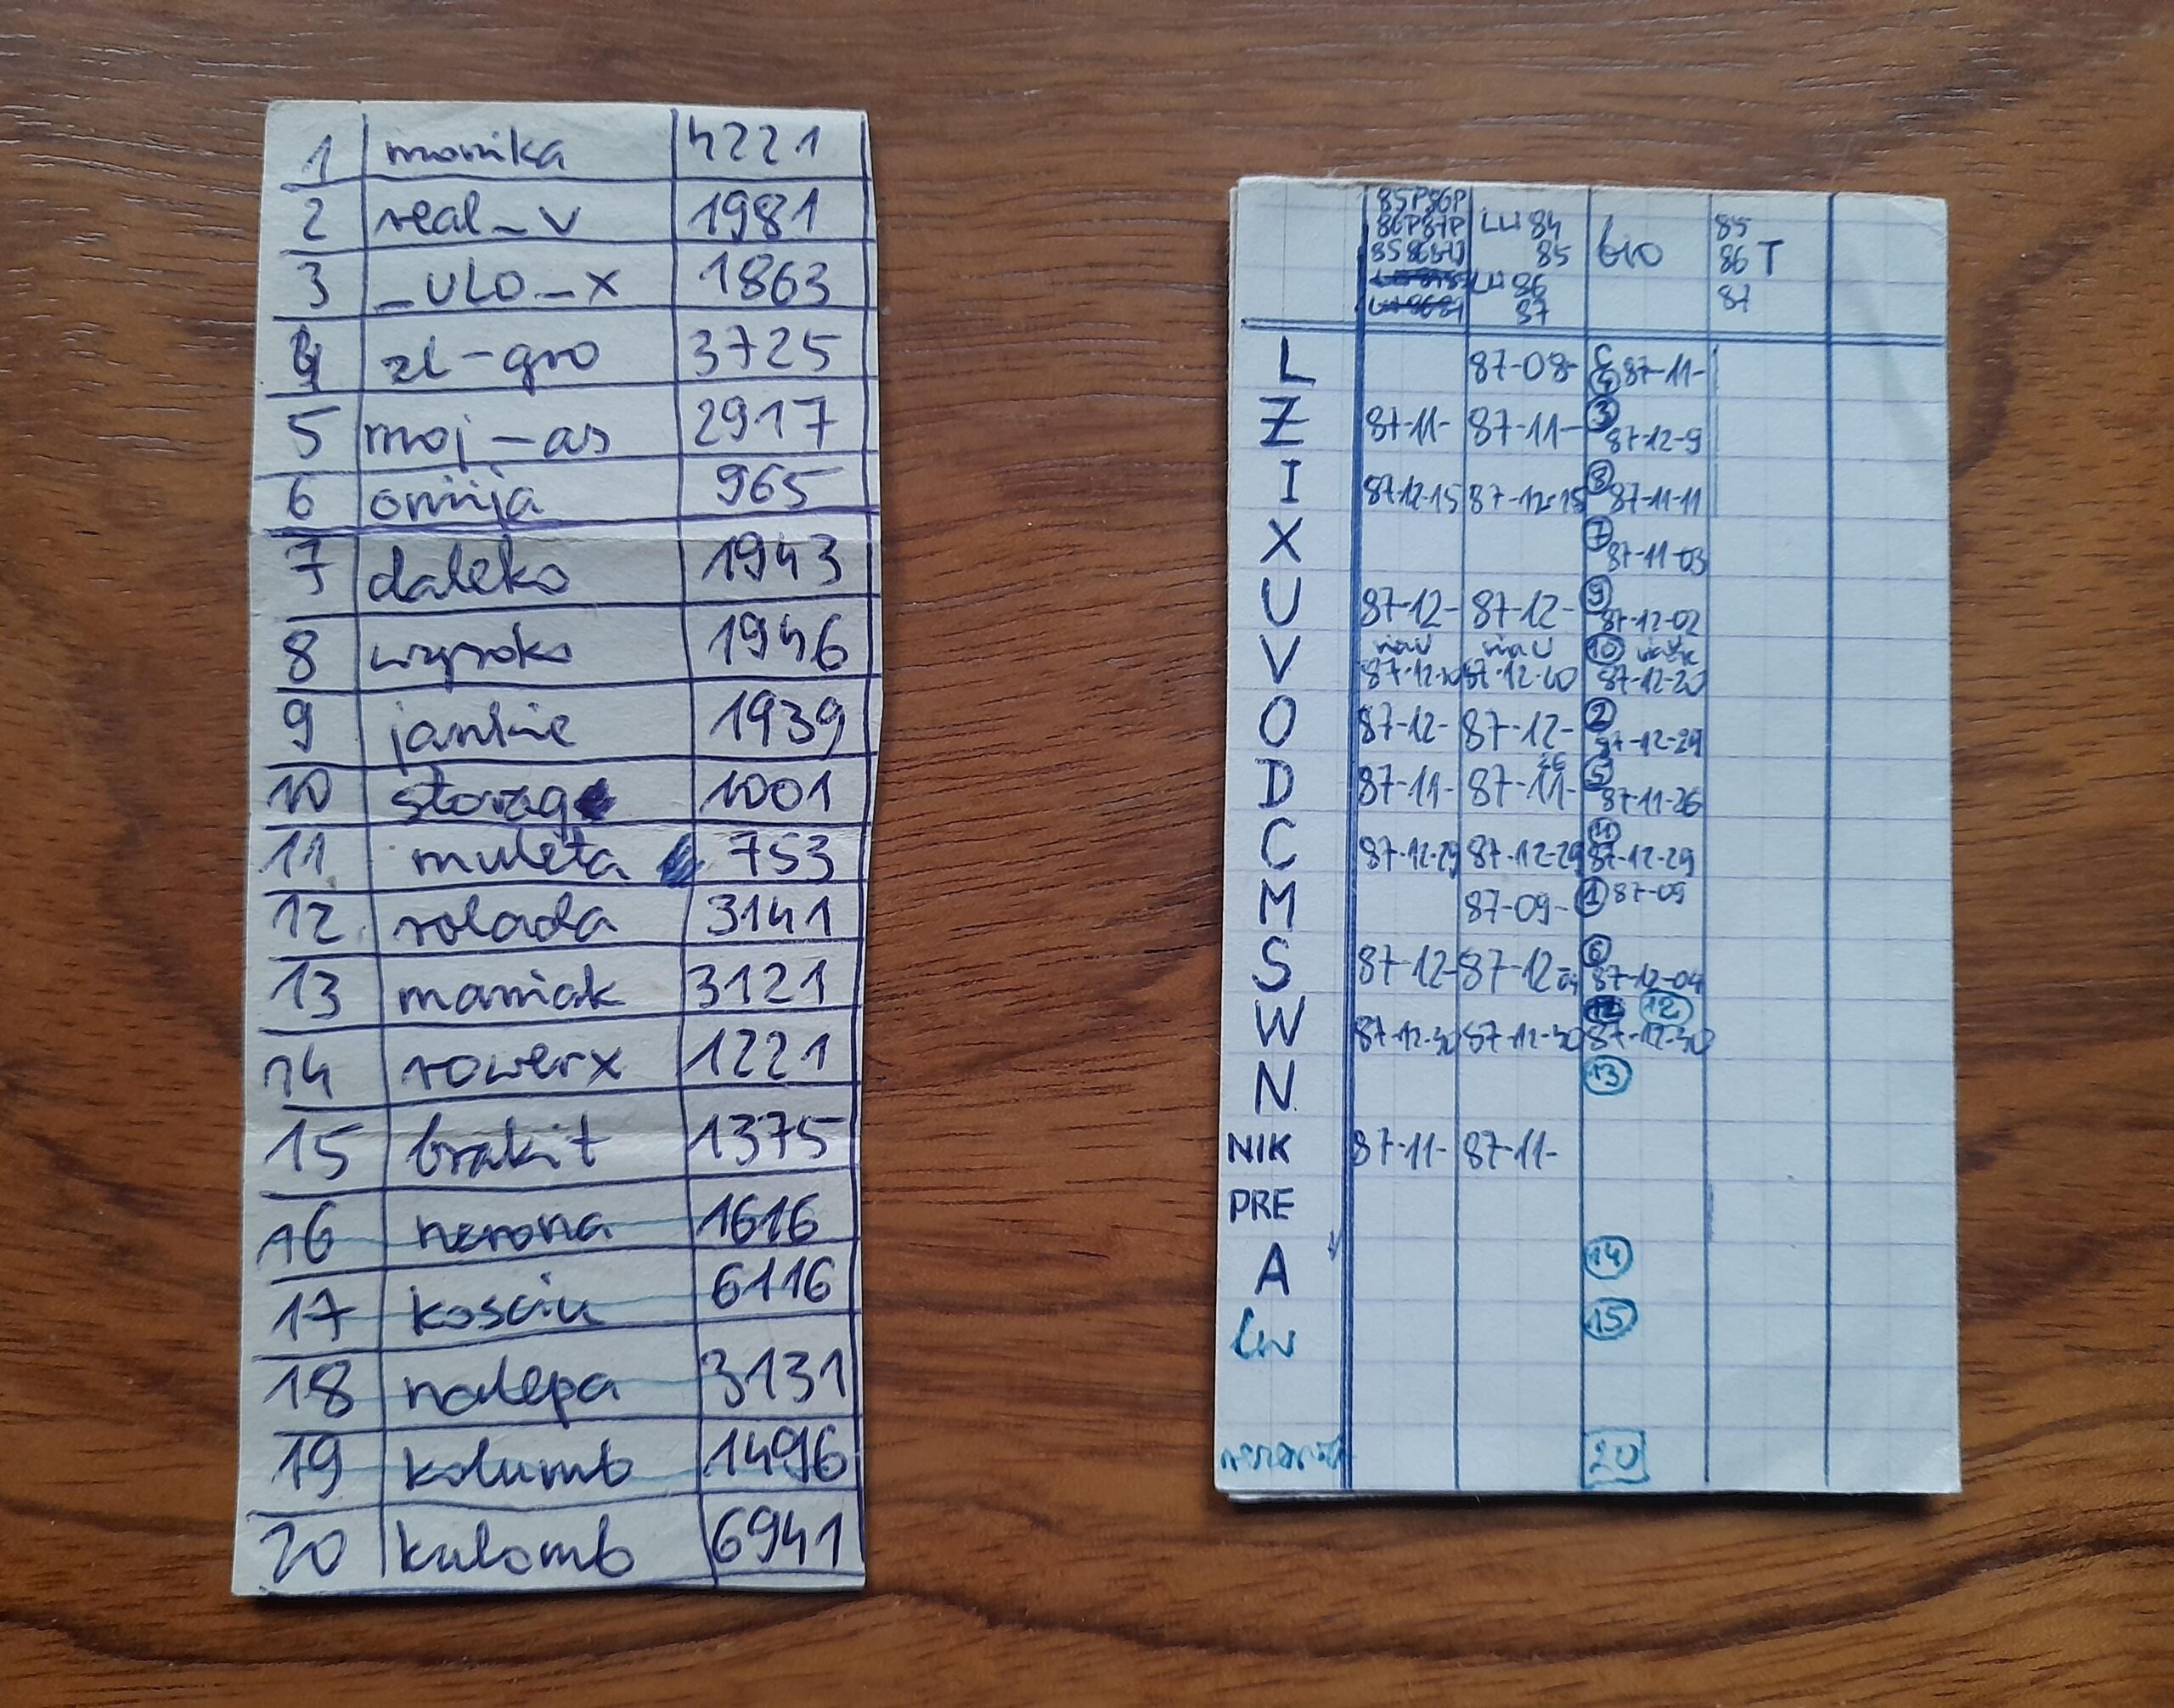 1 monika 4221
2 real_v 1981
3 _ULO_X 1863
4 zl-gro 3725
5 moj-as 2917
6 965
7 daleko 1943
8 wysoko 1946
9 1939
10 storage 1001
11 muleta 753
12 rolada 3141
13 maniak 3121
14 rowerx 1221
15 brakit 1375
16 nerona 1616
17 kosciu 6116
18 nalepa 3131
19 kolumb 1496
20 kulomb 6941
85P86P
86P87P LU 84 85
85 86 T
LU 86 87
87
L 87-08- 87-11-
Z 87-11- 87-11- 3 87-12-9
I 87-12-15 87-12-15 8 87-11-11
X 7 87-11-03
U 87-12- 87-12- 9 87-12-02
V 10
87-12-20 87-12-20
O 87-12- 87-12- 2 87-12-29
D 87-11- 87-11- 26 5 87-11-26
C 87-12-29 87-12-29 11 87-12-29
M 87-09- 1 87-09
S 87-12- 87-12 04 6 87-12-04
W 12
87-12-30 87-12-30 87-12-30
N 13
NIK 87-11- 87-11-
PRE
A 14
15
20